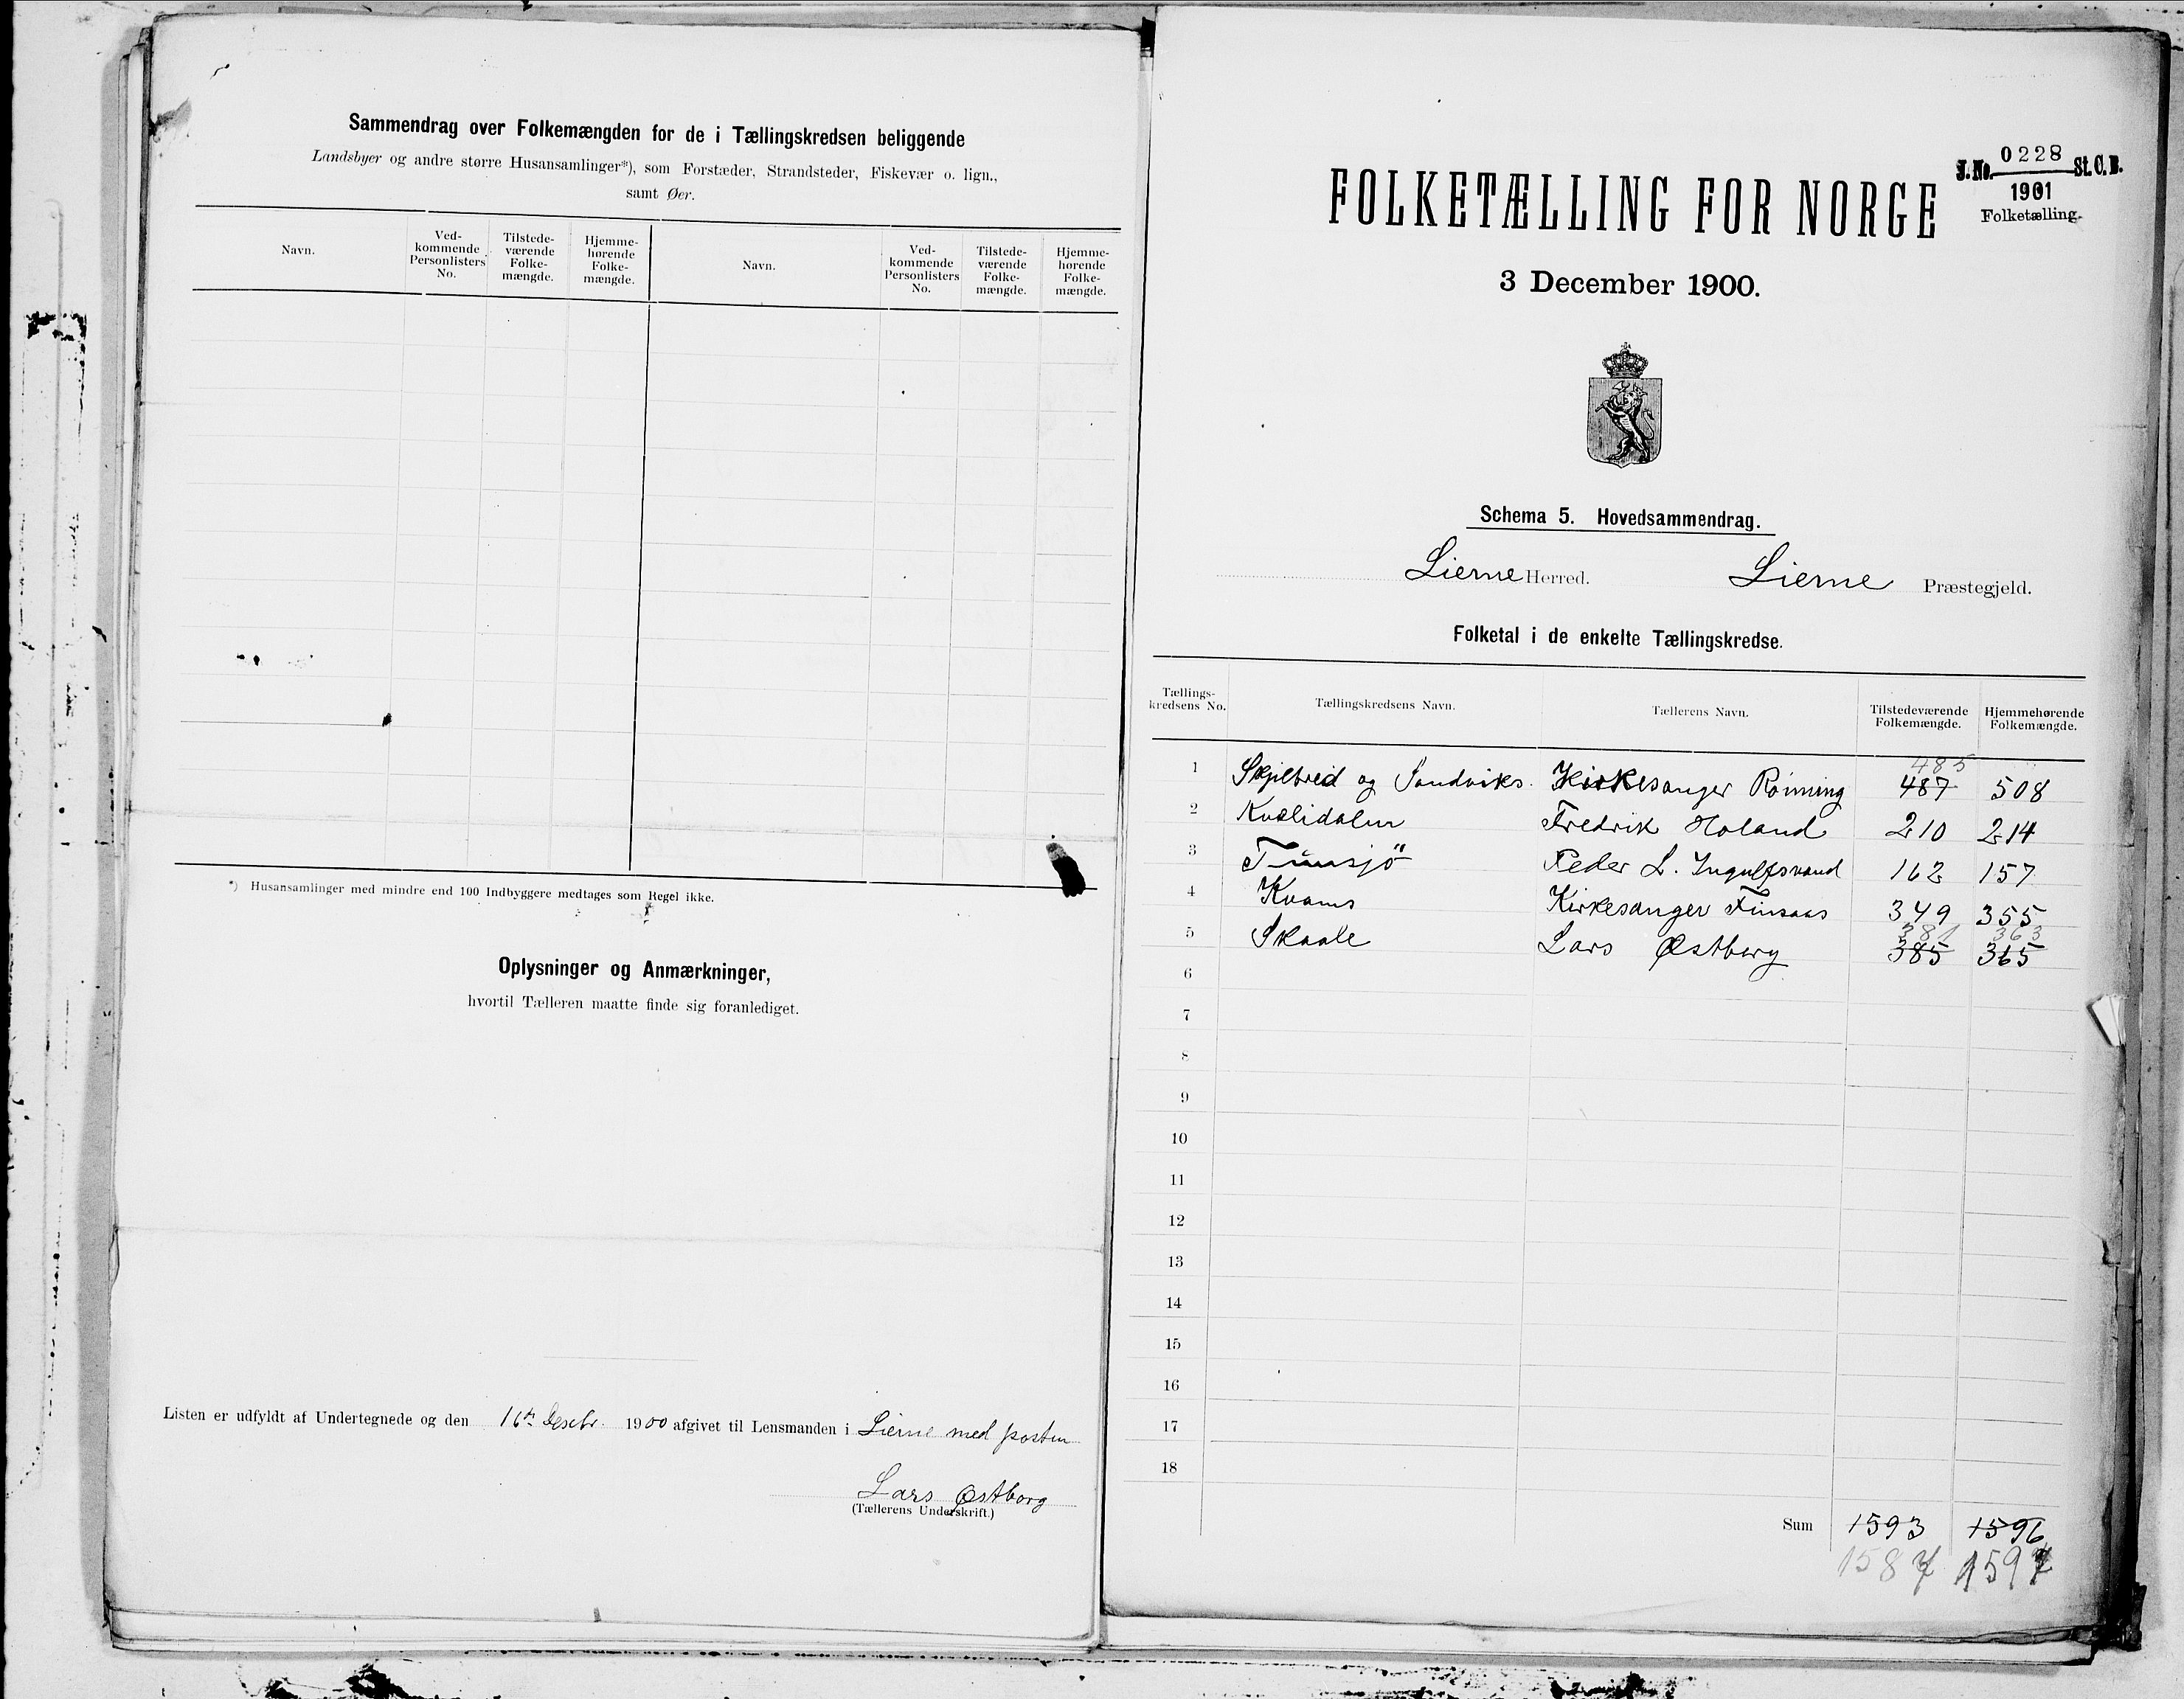 Sammendrag over Folkemængden for de i Tællingskredsen beliggende
Landsbyer og andre større Husansamlinger*), som Forstæder, Strandsteder, Fiskevær o. lign.,
samt Øer.
Navn. Ved-kommende Personlisters No. Tilstede-værende Folke-mængde. Hjemme-hørende Folke-mængde. Navn. Ved-kommende Personlisters No. Tilstede-værende Folke-mængde. Hjemme-hørende Folke-mængde.
*) Husansamlinger med mindre end 100 Indbyggere medtages som Regel ikke.
Oplysninger og Anmærkninger,
hvortil Tælleren maatte finde sig foranlediget.
Listen er udfyldt af Undertegnede og den 16de Desebr. 1900 afgivet til Lensmanden i Lierne med posten
Lars Østborg
(Tællerens Underskrift.)
J. No. 0228 St. C. B.
1901
Folketælling.
FOLKETÆLLING FOR NORGE
3 December 1900.
Schema 5. Hovedsammendrag.
Lierne Herred. Lierne Præstegjeld.
Folketal i de enkelte Tællingskredse.
Tællings-kredsens No. Tællingskredsens Navn. Tællerens Navn. Tilstedeværende Folkemængde. Hjemmehørende Folkemængde.
485
1 Skjelbred og Sandviks. Kirkesanger Rönning 487 508
2 Kvelidalen Fredrik Holand 210 214
3 Tunsjö Peder L. Ingulfsvand 162 157
4 Kvams Kirkesanger Finsaas 349 355
381 363
5 Skaale Lars Østborg 385 365
6
7
8
9
10
11
12
13
14
15
16
17
18
Sum 1593 1596
1587 1597